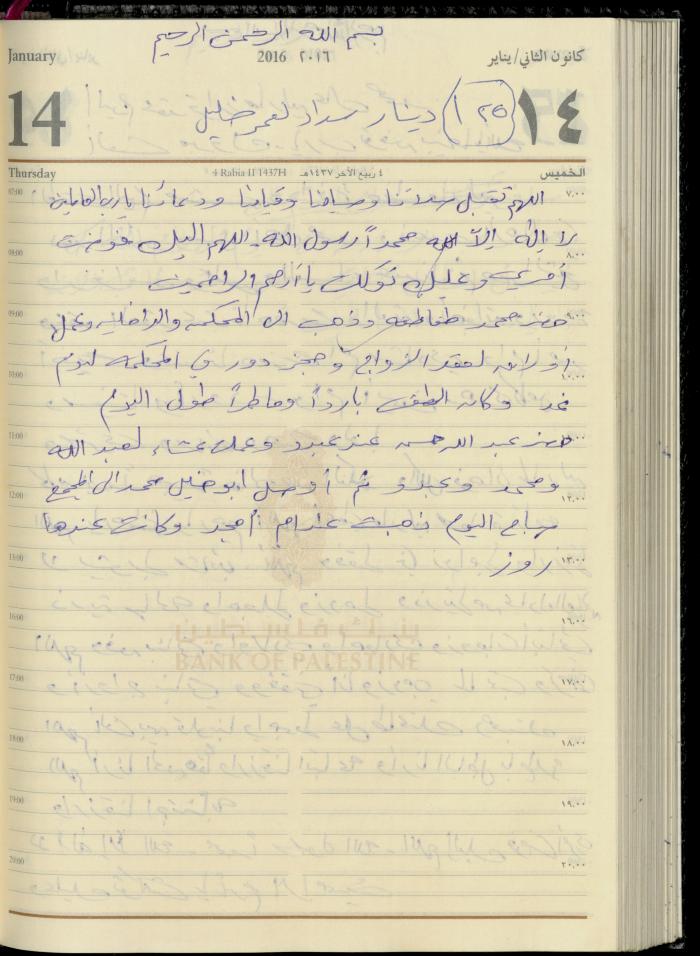 بسم الله الرحمن الرحيم
January 2016 ٢٠١٦ كانون الثاني/يناير
14 (١٢٥) دينار سداد لعمر خليل ١٤
Thursday 4 Rabia II 1437H ٤ ربيع الآخر ١٤٣٧هـ الخميس
07:00 ٧,٠٠
اللهم تقبل صلاتنا وصيامنا وقيامنا ودعائنا يا رب العالمين
لا إله إلا الله محمداً رسول الله. اللهم إليك فوضت
08:00 ٨,٠٠
أمري وعليك توكلت يا أرحم الراحمين
09:00 ٩,٠٠
حضر محمد طقاطقه وذهب الى المحكمه والداخليه وعمل
أوراقه لعقد الزواج وحجز دور في المحكمه ليوم
10:00 ١٠,٠٠
غد وكان الطقس بارداً وماطراً طول اليوم
11:00 ١١,٠٠
حضر عبد الرحمن عند عبدو وعملت عشاء لعبد الله
ومحمد وعبدو ثم أوصل ابو خليل محمد الى المجمع
12:00 ١٢,٠٠
صباح اليوم ذهبت عند ام أمجد وكانت عندها
13:00 ١٣,٠٠
روز
16:00 ١٦,٠٠
بنك فلسطين
BANK OF PALESTINE
17:00 ١٧,٠٠
18:00 ١٨,٠٠
19:00 ١٩,٠٠
20:00 ٢٠,٠٠